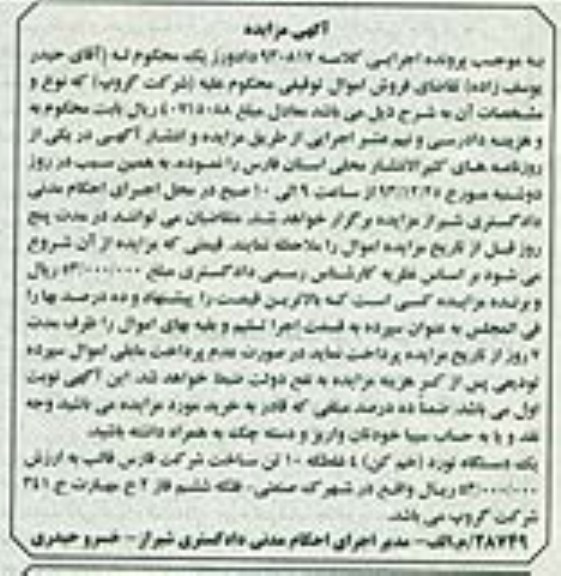 آگهی مزایده
به موجب پرونده اجرایی کلاسه ۹۳۰۸۱۷ دادورز یک محکوم له (آقای حیدر
یوسف زاده) تقاضای فروش اموال توقیفی محکوم علیه (شرکت گروب) که نوع و
مشخصات آن به شرح ذیل می باشد معادل مبلغ ریال بابت محکوم به
و هزینه دادرسی و نیم عشر اجرایی از طریق مزایده و انتشار آگهی در یکی از
روزنامه های کثیرالانتشار محلی استان فارس را نموده، به همین سبب در روز
دوشنبه مورخ ۹۳/۱۲/۲۵ از ساعت ۹ الی ۱۰ صبح در محل اجرای احکام مدنی
دادگستری شیراز مزایده برگزار خواهد شد. متقاضیان می توانند در مدت پنج
روز قبل از تاریخ مزایده اموال را ملاحظه نمایند. قیمتی که مزایده از آن شروع
می شود بر اساس نظریه کارشناس رسمی دادگستری مبلغ ۵۳/۰۰۰/۰۰۰ ریال
و برنده مزایده کسی است که بالاترین قیمت را پیشنهاد و ده درصد بها را
فی المجلس به عنوان سپرده به قسمت اجرا تسلیم و بقیه بهای اموال را ظرف مدت
۷ روز از تاریخ مزایده پرداخت نماید در صورت عدم پرداخت مابقی اموال سپرده
تودیعی پس از کسر هزینه مزایده به نفع دولت ضبط خواهد شد. این آگهی نوبت
اول می باشد. ضمناً ده درصد مبلغی که قادر به خرید مورد مزایده می باشید وجه
نقد و یا به حساب سیبا خودتان واریز و دسته چک به همراه داشته باشید.
یک دستگاه نورد (خم کن) ٤ غلطکه ۱۰ تن ساخت شرکت فارس قالب به ارزش
۵۳/۰۰۰/۰۰۰ ریال واقع در شهرک صنعتی- فلکه ششم فاز ۲ خ مهارت خ ۳۴۱
شرکت گروب می باشد.
۲۸۷۴۹/م.الف- مدیر اجرای احکام مدنی دادگستری شیراز- خسرو حیدری